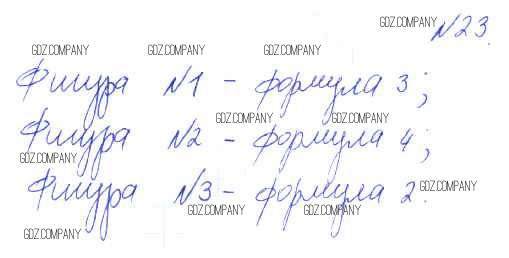 GDZ.COMPANY №23.
GDZ.COMPANY GDZ.COMPANY GDZ.COMPANY
Фигура №1 - формула 3;
GDZ.COMPANY GDZ.COMPANY
Фигура №2 - формула 4;
GDZ.COMPANY
Фигура №3 - формула 2.
GDZ.COMPANY
GDZ.COMPANY GDZ.COMPANY
GDZ.COMPANY